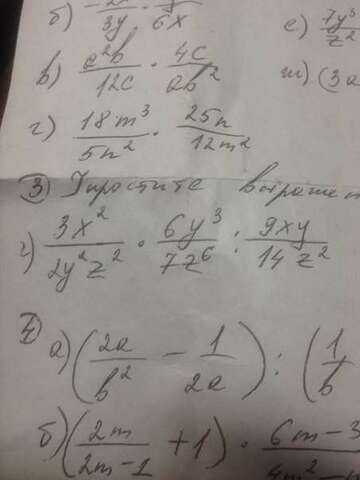 б) 3y · 6x
е) 7y³/z²
в) a²b/12c · 4c/ab²
ж) (3a
г) 18m³/5n² · 25n/12m²
③ Упростите выражен
г) 3x²/2y²z² · 6y³/7z⁶ : 9xy/14z²
④
а) (2a/b² - 1/2a) : (1/b
б) (2m/2m-1 + 1) · 6m-3/4m²-